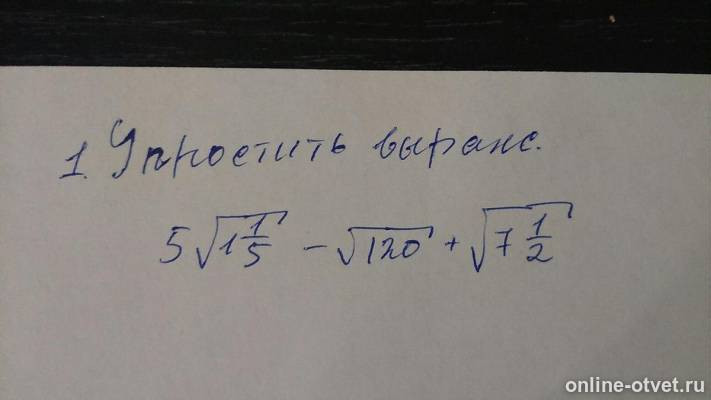 1. Упростить выраж.
5√1 1/5 - √120 + √7 1/2
online-otvet.ru